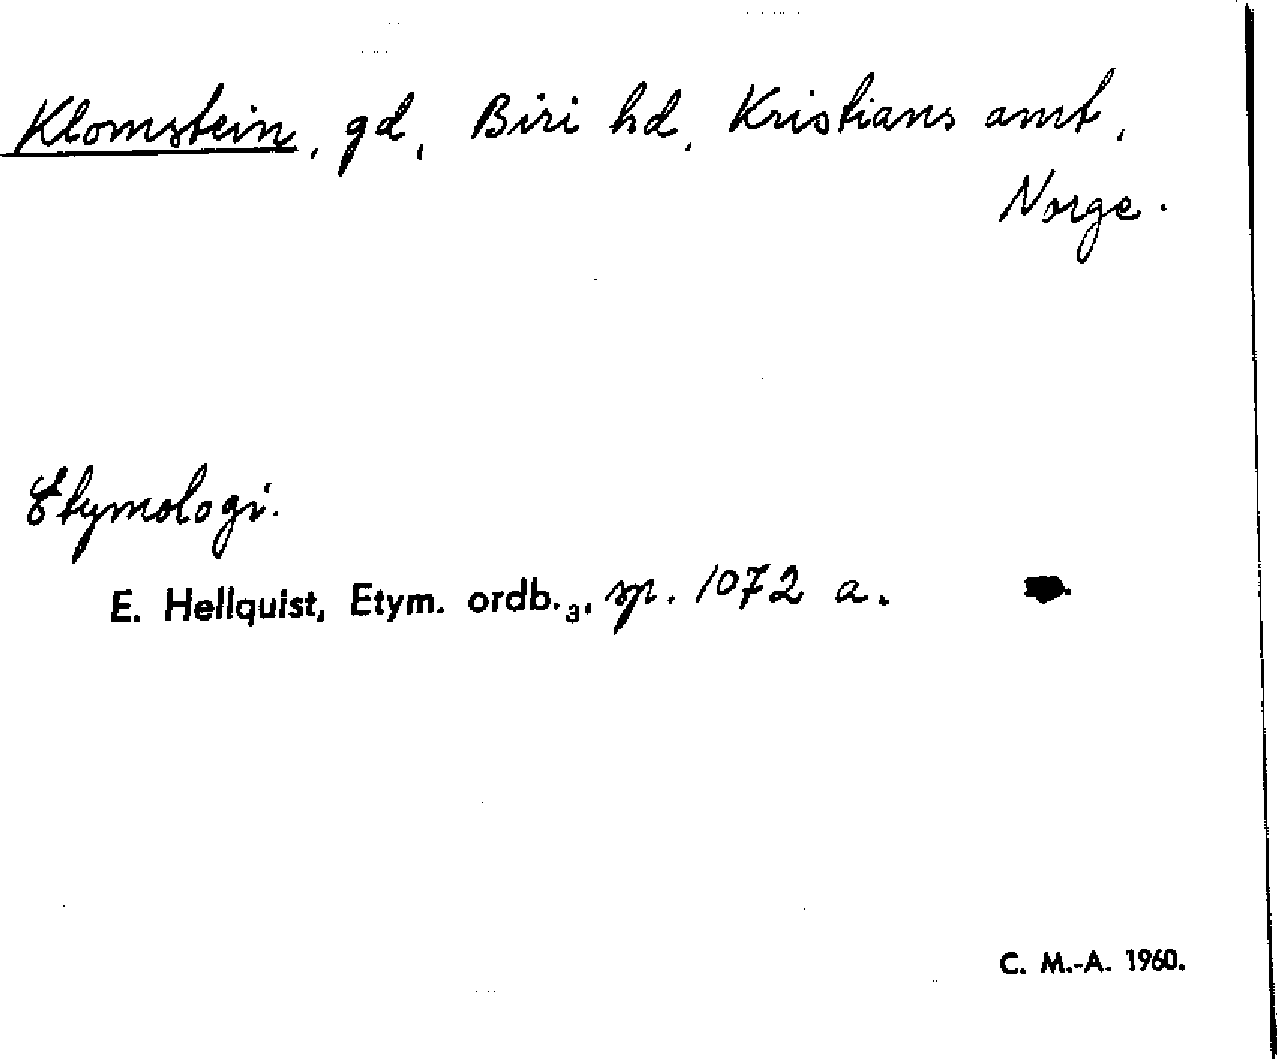 Klomstein, gd, Biri hd, Kristians amt,
Norge.
Etymologi.
E. Hellquist, Etym. ordb.₃, sp. 1072 a.
C. M.-A. 1960.